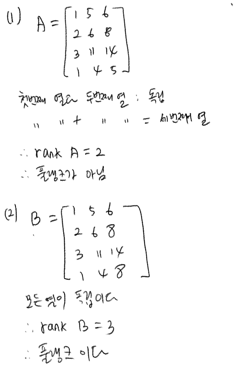 (1) A = [1 5 6
2 6 8
3 11 14
1 4 5]
첫번째 열과 두번째 열 : 독립
" " + " " = 세번째 열
∴ rank A = 2
∴ 풀랭크가 아님
(2) B = [1 5 6
2 6 8
3 11 14
1 4 8]
모든 열이 독립이다
∴ rank B = 3
∴ 풀랭크 이다